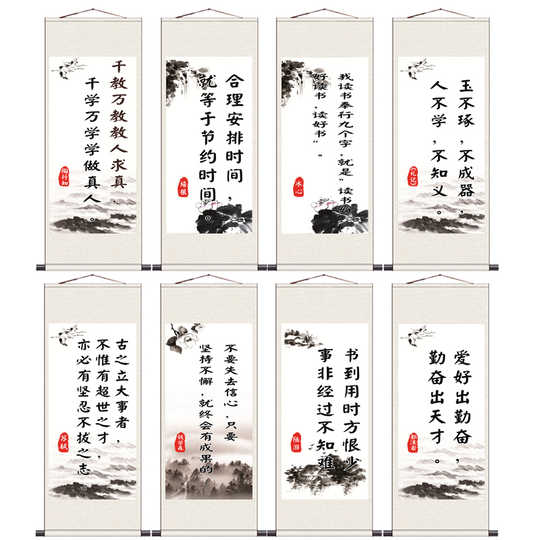 千教万教教人求真，
千学万学学做真人。
陶行知
合理安排时间，
就等于节约时间。
培根
我读书奉行九个字，就是"读书，
好读书，读好书"。
冰心
玉不琢，不成器，
人不学，不知义。
《礼记》
古之立大事者，
不惟有超世之才，
亦必有坚忍不拔之志
苏轼
不要失去信心，只要
坚持不懈，就终会有成果的
钱学森
书到用时方恨少
事非经过不知难
陆游
爱好出勤奋，
勤奋出天才。
郭沫若